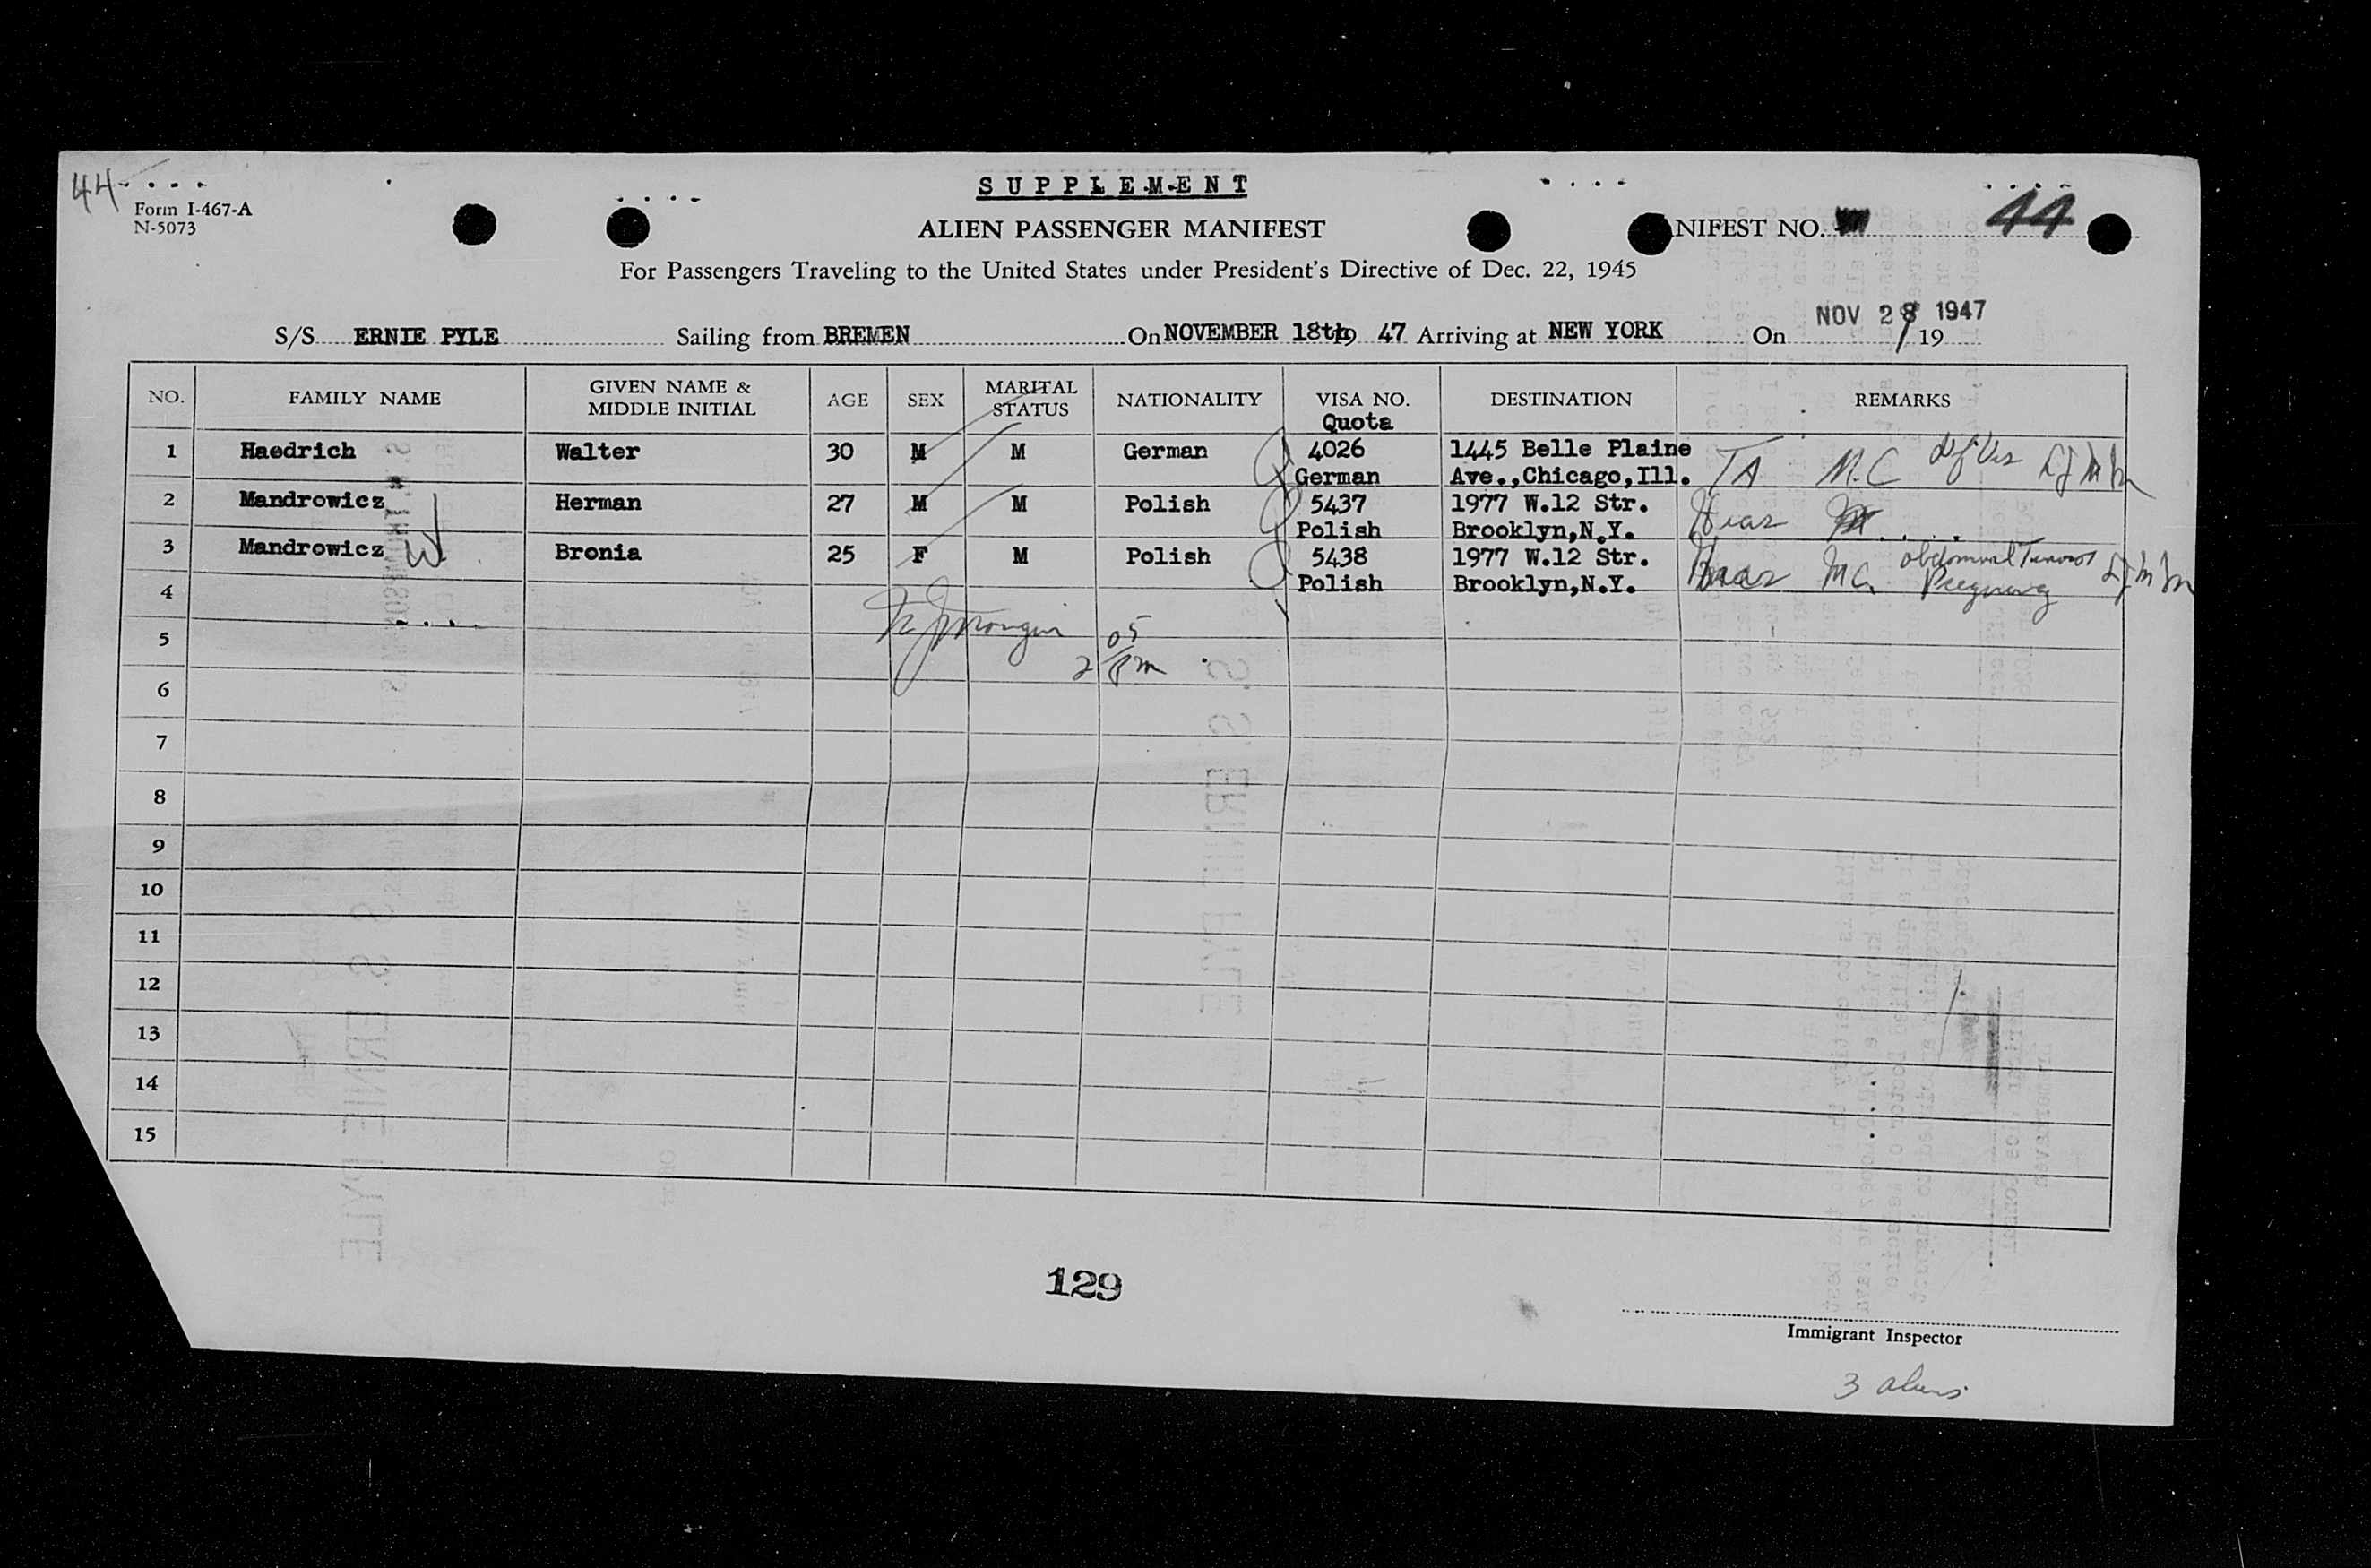 44
SUPPLEMENT
Form I-467-A
N-5073
ALIEN PASSENGER MANIFEST
NIFEST NO. 44
For Passengers Traveling to the United States under President's Directive of Dec. 22, 1945
S/S ERNIE PYLE Sailing from BREMEN On NOVEMBER 18th 19 47 Arriving at NEW YORK On NOV 28 1947 19
NO. FAMILY NAME GIVEN NAME & MIDDLE INITIAL AGE SEX MARITAL STATUS NATIONALITY VISA NO. Quota DESTINATION REMARKS
1 Haedrich Walter 30 M M German 4026 1445 Belle Plaine
German Ave.,Chicago,Ill. TA M.C Df Vis
2 Mandrowicz Herman 27 M M Polish 5437 1977 W.12 Str.
Polish Brooklyn,N.Y. Hias
3 Mandrowicz Bronia 25 F M Polish 5438 1977 W.12 Str. abdominal Tumor
Polish Brooklyn,N.Y. Hias MC
4
5
2 05/Pm
6
7
8
9
10
11
12
13
14
15
129
Immigrant Inspector
3 aliens